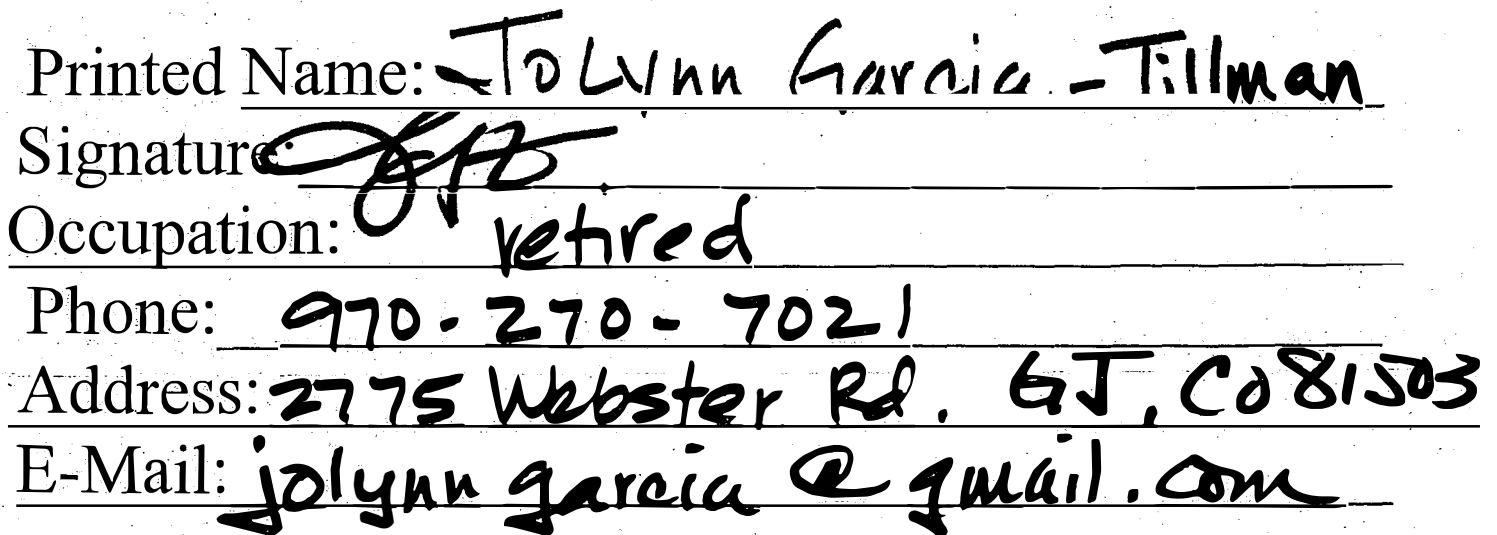 Printed Name: JoLynn Garcia - Tillman
Signature:
Occupation: retired
Phone: 970-270-7021
Address: 2775 Webster Rd. GJ, CO 81503
E-Mail: jolynngarcia@gmail.com